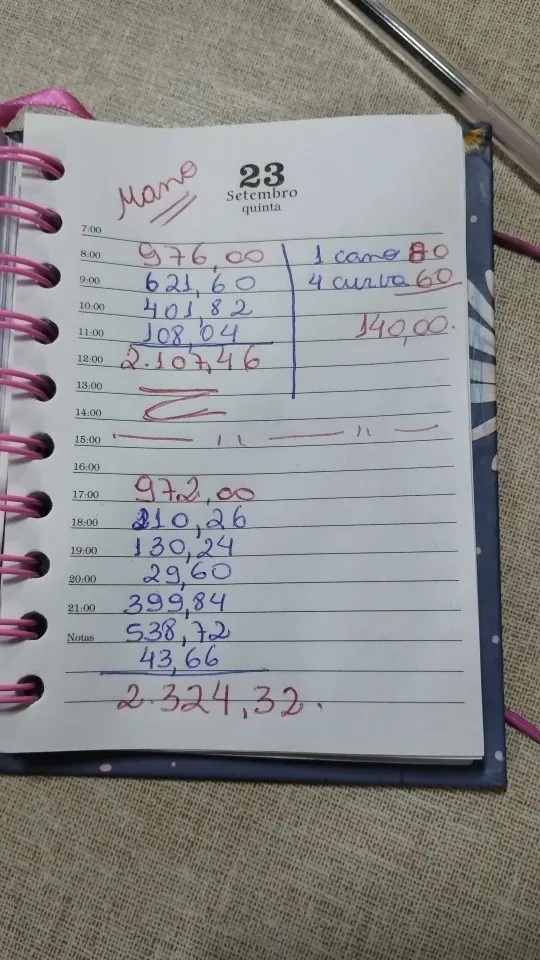 Mano
23
Setembro
quinta
7:00
8:00 976,00 1 cano 80
9:00 621,60 4 curva 60
10:00 401,82
11:00 108,04 140,00.
12:00 2.107,46
13:00
14:00
15:00
16:00
17:00 972,00
18:00 210,26
19:00 130,24
20:00 29,60
21:00 399,84
Notas 538,72
43,66
2.324,32.